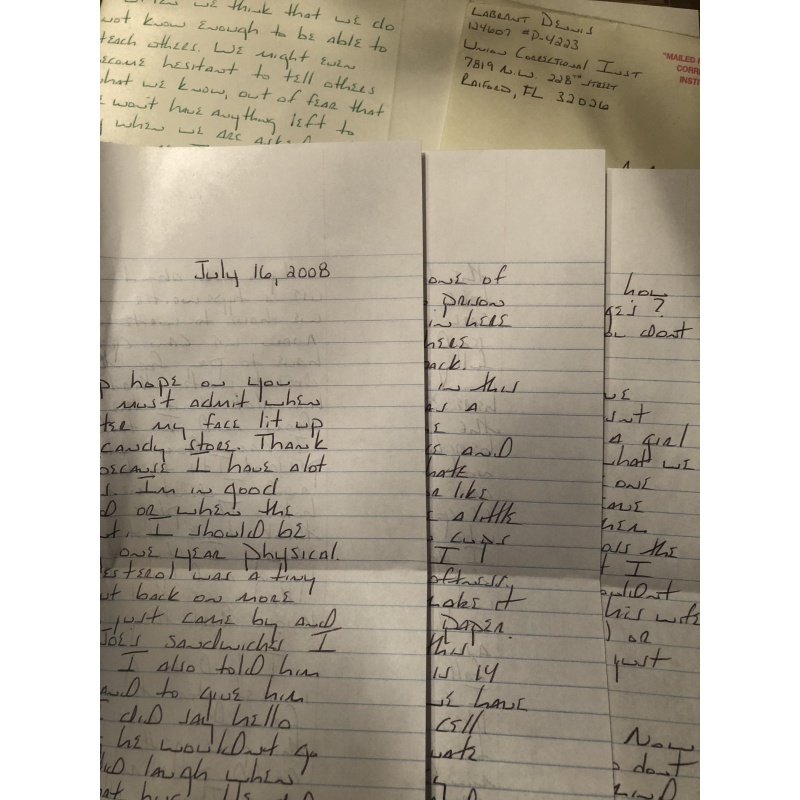 when we think that we do
not know enough to be able to
teach others. We might even
become hesitant to tell others
what we know, out of fear that
we wont have anything left to
when we are asked
Labrant Dennis
124607 #P-4223
Union Correctional Inst
7819 N.W. 228th Street
Raiford, FL 32026
"MAILED
CORR
INSTI
July 16, 2008
p hope on you
must admit when
ter my face lit up
candy store. Thank
because I have alot
s. Im in good
D or when the
t. I should be
one year physical.
esterol was a tiny
ut back on more
just came by and
Joes sandwiches I
I also told him
and to give him
I did say hello
he wouldnt go
did laugh when
one of
prison
in here
here
back.
in this
as a
E
E and
hate
a like
a little
cups
I
oftness.
make it
paper.
this
is 14
we have
cell
uate
how
ges?
u dont
we
snt
a girl
what we
one
ave
her
als the
t I
ouldnt
his wife
) or
just
Now
o dont